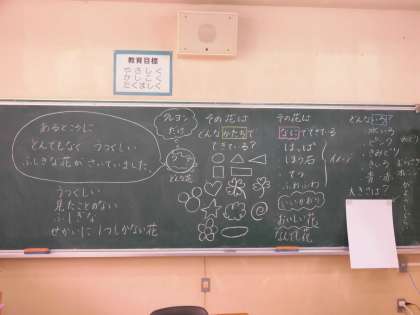 教育目標
やさしく
かしこく
たくましく
あるところに
とんでもなく うつくしい
ふしぎな花が さいていました。
うつくしい
見たことのない
ふしぎな
せかいに 1つしかない花
クレヨン
だけ
テーマ
どんな花
その花は
どんなかたちで
できている?
その花は
なにでできている
はっぱ
ほう石
てつ
ふわふわ
イメージ
いいかおり
おいしい花
なんでも花
どんないろ?
水いろ
ピンク
きいろ
青・赤
大きさは?